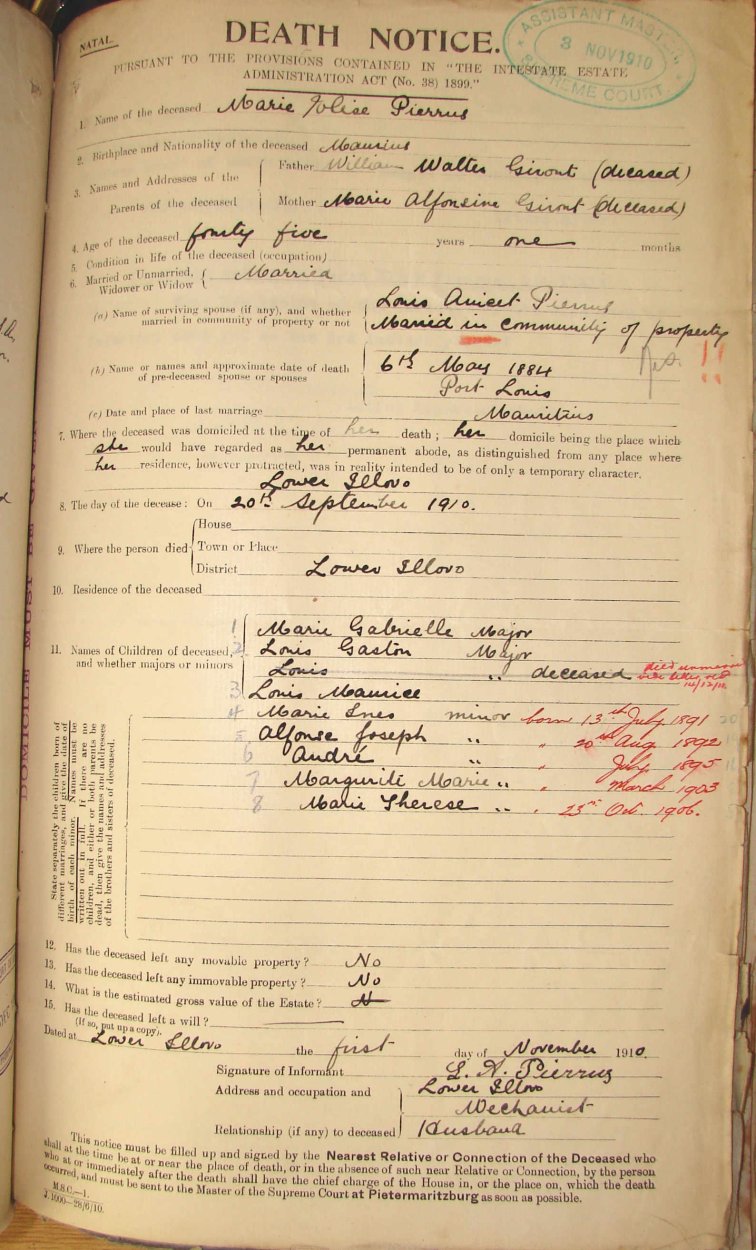 NATAL.
DEATH NOTICE.
ASSISTANT MASTER
3 NOV 1910
SUPREME COURT.
PURSUANT TO THE PROVISIONS CONTAINED IN "THE INTESTATE ESTATE
ADMINISTRATION ACT (No. 38) 1899."
1. Name of the deceased Marie Elise Pierrus
2. Birthplace and Nationality of the deceased Maurius
3. Names and Addresses of the Parents of the deceased
Father William Walter Giront (deceased)
Mother Marie Alfonsine Giront (deceased)
4. Age of the deceased fourty five years one months
5. Condition in life of the deceased (occupation)
6. Married or Unmarried, Widower or Widow Married
(a) Name of surviving spouse (if any), and whether married in community of property or not
Louis Anicet Pierrus
Married in community of property
(b) Name or names and approximate date of death of pre-deceased spouse or spouses
6th May 1884
Port Louis
(c) Date and place of last marriage Mauritius
7. Where the deceased was domiciled at the time of her death; her domicile being the place which
she would have regarded as her permanent abode, as distinguished from any place where
her residence, however protracted, was in reality intended to be of only a temporary character.
Lower Illovo
8. The day of the decease: On 20th September 1910.
9. Where the person died
House
Town or Place
District Lower Illovo
10. Residence of the deceased
11. Names of Children of deceased, and whether majors or minors
1 Marie Gabrielle Major
2 Louis Gaston Major
Louis " deceased died unmarried
14/12/10
3 Louis Maurice
4 Marie Ines minor born 13th July 1891
5 Alfonse Joseph " " 20th Aug 1892
6 André " July 1895
7 Margurite Marie " " March 1903
8 Marie Therese " 23rd Oct. 1906.
State separately the children born of
different marriages, and give the date of
birth of each minor. Names must be
written out in full. If there are no
children, and either or both parents be
dead, then give the names and addresses
of the brothers and sisters of deceased.
DOMICILE MUST BE GIVEN
12. Has the deceased left any movable property? No
13. Has the deceased left any immovable property? No
14. What is the estimated gross value of the Estate?
15. Has the deceased left a will?
(If so, put up a copy).
Dated at Lower Illovo the first day of November 1910.
Signature of Informant L. A. Pierrus
Address and occupation and
Lower Illovo
Mechanist
Relationship (if any) to deceased Husband
This notice must be filled up and signed by the Nearest Relative or Connection of the Deceased who
shall at the time be at or near the place of death, or in the absence of such near Relative or Connection, by the person
who at or immediately after the death shall have the chief charge of the House in, or the place on, which the death
occurred, and must be sent to the Master of the Supreme Court at Pietermaritzburg as soon as possible.
M.S.C.—1.
J.1000—28/6/10.